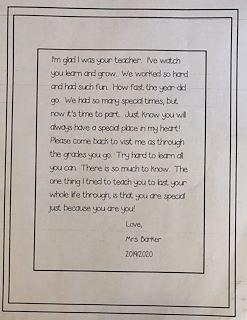 I'm glad I was your teacher. I've watch
you learn and grow. We worked so hard
and had such fun. How fast the year did
go. We had so many special times, but
now it's time to part. Just know you will
always have a special place in my heart!
Please come back to visit me as through
the grades you go. Try hard to learn all
you can. There is so much to know. The
one thing I tried to teach you to last your
whole life through, is that you are special
just because you are you!
Love,
Mrs. Barker
2019/2020